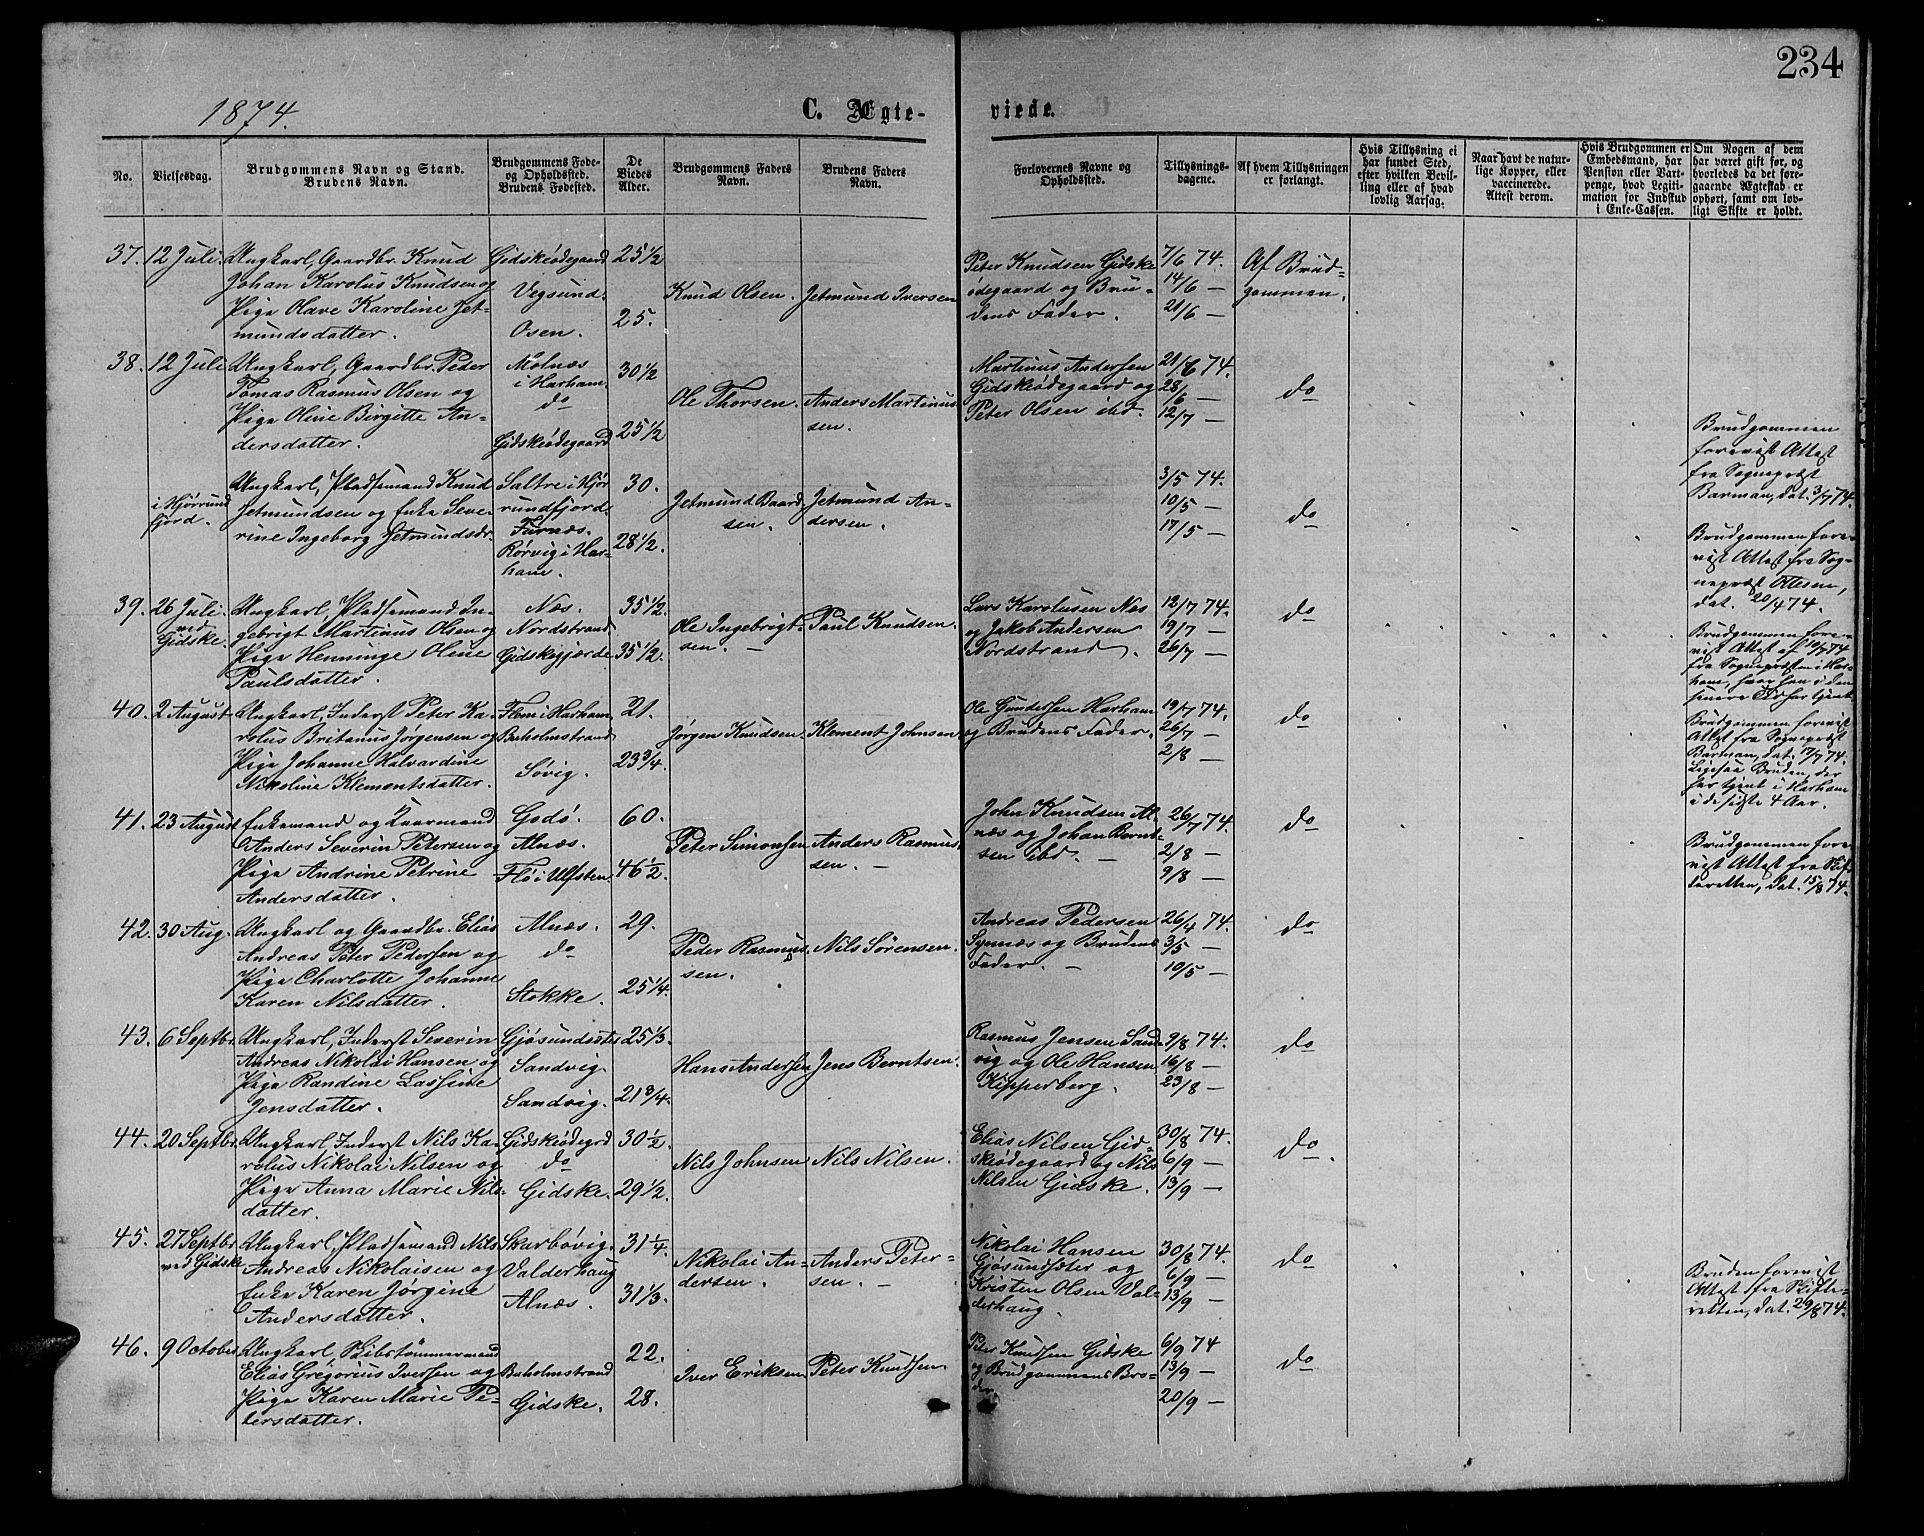 234
1874.
C. Ægte-
viede.
No.
Vielsesdag.
Brudgommens Navn og Stand.
Brudens Navn.
Brudgommens Føde-
og Opholdssted.
Brudens Fødested.
De
Viedes
Alder.
Brudgommens Faders
Navn.
Brudens Faders
Navn.
Forlovernes Navne og
Opholdssted.
Tillysnings-
dagene.
Af hvem Tillysningen
er forlangt.
Hvis Tillysning ei
har fundet Sted,
efter hvilken Bevil-
ling eller af hvad
lovlig Aarsag.
Naar havt de natur-
lige Kopper, eller
vaccinerede.
Attest derom.
Hvis Brudgommen er
Embedsmand, har
Pension eller Vart-
penge, hvad Legiti-
mation for Indskud
i Enke-Cassen.
Om Nogen af dem
har været gift før, og
hvorledes da det fore-
gaaende Ægteskab er
ophørt, samt om lov-
ligt Skifte er holdt.
37. 12 Juli.
Ungkarl, Gaardbr. Knud
Johan Karolus Knudsen og
Pige Olave Karoline Jet-
mundsdatter.
Gidskeødegaard
Vegsund.
Osen.
25 1/2
25.
Knud Olsen.
Jetmund Iversen
Peter Knudsen Gidske
ødegaard og Bru-
dens Fader.
7/6 74.
14/6 —
21/6 —
Af Brud-
gommen.
38. 12 Juli
Ungkarl, Gaardbr. Peder
Tomas Rasmus Olsen og
Pige Oline Birgitte An-
dersdatter.
Molnæs
i Harham.
do
Gidskeødegaard
30 1/2
25 1/2
Ole Thorsen.
Anders Martinus-
sen.
Martinus Andersen
Gidskeødegaard og
Peter Olsen ibd.
21/6 74.
28/6 —
12/7 —
do
Brudgommen
forevist Attest
fra Sognepræst
Barman, dat. 3/7 74.
i Hjørund
fjord.
Ungkarl, Pladsemand Knud
Jetmundsen og Enke Seve-
rine Ingeborg Jetmundsdr.
Saltre i Hjør
rundfjord.
Furnæs.
Rørvig i Har-
ham.
30.
28 1/2.
Jetmund Baard
sen.
Jetmund An-
dersen.
3/5 74.
10/5 —
17/5 —
do
Brudgommen fore-
vist Attest fra Sog-
nepræst Ottesen,
dat. 20/4 74.
39. 26 Juli.
ved
Gidske.
Ungkarl, Pladsemand In-
gebrigt Martinus Olsen og
Pige Henninge Olene
Paulsdatter.
Næs.
Nordstrand
Gidskegjerde
35 1/2.
35 1/2.
Ole Ingebrigt-
sen. —
Paul Knudsen.
Lars Karolusen Næs
og Jakob Andersen
Nordstrand.
12/7 74.
19/7 —
26/7 —
do
Brudgommen fore-
vist Attest af 10/7 74
fra Sognepræsten i Har-
ham, hvor han i den
senere Tid har tjent.
40. 2 August
Ungkarl, Inderst Peter Ka-
rolus Britanus Jørgensen og
Pige Johanne Halvardine
Nikoline Klementsdatter.
Flem i Harham.
Buholmstrand
Søvig.
21.
23 3/4.
Jørgen Knudsen.
Klement Johnsen
Ole Gundersen Harham
og Brudens Fader.
19/7 74.
26/7 —
2/8 —
do
Brudgommen forevist
Attest fra Sognepræst
Barman, dat. 17/7 74.
Ligesaa Bruden, der
har tjent i Harham
i de sidste 4 Aar.
41. 23 August
Enkemand og Kaarmand
Anders Severin Petersen og
Pige Andrine Petrine
Andersdatter.
Godø.
Alnæs.
Flø i Ulfsten.
60.
46 1/2
Peter Simonsen
Anders Rasmus-
sen. —
John Knudsen Al-
næs og Johan Bernt-
sen ibd. —
26/7 74.
2/8 —
9/8 —
do
Brudgommen fore-
vist Attest fra Skif-
teretten, dat. 15/8 74.
42. 30 Aug.
Ungkarl og Gaardbr. Elias
Andreas Peter Pedersen og
Pige Charlotte Johanne
Karen Nilsdatter.
Alnæs.
do
Stokke.
29.
25 1/4.
Peder Rasmus-
sen.
Nils Sørensen.
Andreas Pedersen
Synnæs og Brudens
Fader. —
26/4 74.
3/5 —
10/5 —
do
43. 6 Septbr.
Ungkarl, Inderst Severin
Andreas Nikolai Hansen og
Pige Randine Lassine
Jensdatter.
Gjøsundsæter
Sandvig.
Sandvig.
25 1/3.
21 3/4.
Hans Andersen
Jens Berntsen.
Rasmus Jensen Sand-
vig og Ole Hansen
Kipperberg.
9/8 74.
16/8 —
23/8 —
do
44. 20 Septbr.
Ungkarl, Inderst Nils Ka-
rolus Nikolai Nilsen og
Pige Anna Marie Nils-
datter.
Gidskeødegrd
do
Gidske.
30 1/2.
29 1/2.
Nils Johnsen
Nils Nilsen.
Elias Nilsen Gid-
skeødegaard og Nils
Nilsen Gidske.
30/8 74.
6/9 —
13/9 —
do.
45. 27 Septbr.
ved Gidske
Ungkarl, Pladsemand Nils
Andreas Nikolaisen og
Enke Karen Jørgine
Andersdatter.
Skarbøvig.
Valderhaug
Alnæs.
31 1/4.
31 1/3.
Nikolai An-
dersen.
Anders Peter-
sen. —
Nikolai Hansen
Gjøsundsæter og
Kristen Olsen Val-
derhaug.
30/8 74.
6/9 —
13/9 —
do
Bruden forevist
Attest fra Skifte-
retten, dat. 29/8 74.
46. 9 October
Ungkarl, Skibstømmermand
Elias Gregorius Iversen og
Pige Karen Marie Pe-
tersdatter.
Buholmstrand
Gidske.
22.
28.
Iver Eriksen
Peter Knudsen.
Peter Knudsen Gidske
og Brudgommens Bro-
der.
6/9 74
13/9 —
20/9 —
do